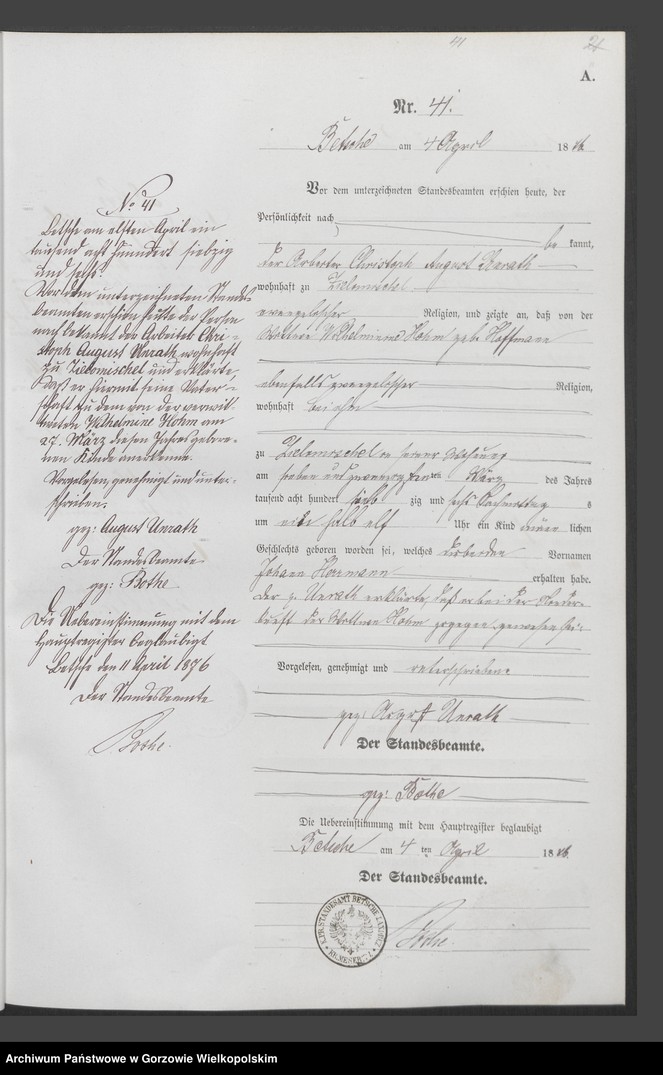 41
A.
Nr. 41.
Betsche am 4 April 1876
Vor dem unterzeichneten Standesbeamten erschien heute, der
Persönlichkeit nach
be kannt,
der Arbeiter Christoph August Unrath
wohnhaft zu Zielomischel
evangelischer Religion, und zeigte an, daß von der
Wittwe Wilhelmine Hohm gebe Hoffmann
ebenfalls evangelischer Religion,
wohnhaft bei ihm
zu Zielomischel in seiner Wohnung
am sieben und zwanzigsten März des Jahres
tausend acht hundert sieb zig und sechs Nachmittags
um halb elf Uhr ein Kind männ lichen
Geschlechts geboren worden sei, welches Vornamen
Johann Herrmann erhalten habe.
Der p. Unrath erklärte, daß er bei der Nieder-
kunft der Wittwe Hohm zugegen gewesen sei.
Vorgelesen, genehmigt und unterschrieben
gez: August Unrath
Der Standesbeamte.
gez: Bothe
Die Uebereinstimmung mit dem Hauptregister beglaubigt
Betsche am 4 ten April 1876.
Der Standesbeamte.
Bothe.
K.PR.STANDESAMT BETSCHE LANDBEZ. KR. MESERITZ
No 41
Betsche am elften April ein
tausend acht hundert siebzig
und sechs.
Vor dem unterzeichneten Standes
beamten erschien heute der Person
nach bekannt der Arbeiter Chri-
stoph August Unrath wohnhaft
zu Zielomischel und erklärte,
daß er hiermit seine Vater-
schaft zu dem von der verwitt-
weten Wilhelmine Hohm am
27. März diesen Jahres gebore-
nen Kinde anerkenne.
Vorgelesen, genehmigt und unter-
schrieben.
gez: August Unrath
Der Standesbeamte
gez: Bothe
Die Uebereinstimmung mit dem
Hauptregister beglaubigt
Betsche den 11 April 1876
Der Standesbeamte
Bothe.
Archiwum Państwowe w Gorzowie Wielkopolskim